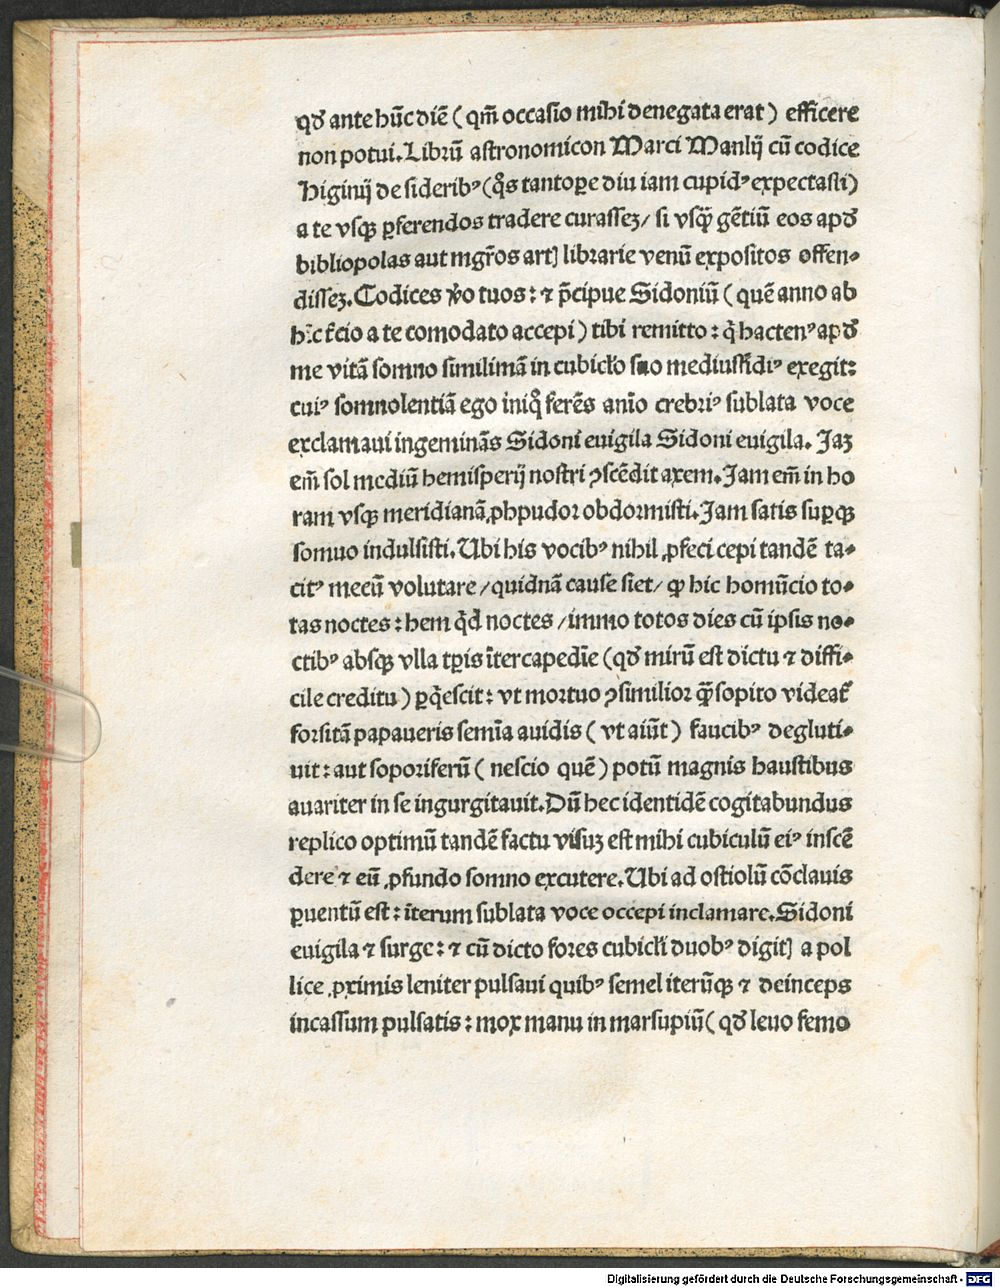 qđ ante hūc diē ( qm̄ occasio mihi denegata erat ) efficere
non potui. Librū astronomicon Marci Manlij cū codice
Higinij de siderib⁹ (q̄s tantope̱ diu iam cupid⁹ expectasti)
a te vsqꝫ ꝑferendos tradere curasseꝫ/ si vsq̄ꝫ gētiū eos apđ
bibliopolas aut mgr̄os artꝭ librarie venū expositos offen⸗
disseꝫ. Codices ꝟo tuos : ⁊ p̄cipue Sidoniū ( quē anno ab
hīc t̄cio a te comodato accepi ) tibi remitto : q̇ hacten⁹ apđ
me vitā somno similimā in cubicl̄o suo mediusfidi⁹ exegit:
cui⁹ somnolentiā ego iniq̇̄ ferēs anīo crebri⁹ sublata voce
exclamaui ingeminās Sidoni euigila Sidoni euigila. Jaꝫ
em̄ sol mediū hemisperij nostri ꝯscēdit axem. Jam em̄ in ho
ram vsqꝫ meridianā ꝓhpudor obdormisti. Jam satis suꝑqꝫ
somuo indulsisti. Ubi his vocib⁹ nihil ꝓfeci cepi tandē ta⸗
cit⁹ mecū volutare / quidnā cause siet/ ꝙ hic homūcio to⸗
tas noctes : hem q̇d noctes / immo totos dies cū ipsis no⸗
ctib⁹ absqꝫ vlla tꝑis ītercapedīe (qđ mirū est dictu ⁊ diffi⸗
cile creditu ) ꝑq̇escit : vt mortuo ꝯsimilior qꝫ̄ sopito videat᷑
forsitā papaueris semīa auidis ( vt aiūt ) faucib⁹ degluti⸗
uit : aut soporiferū ( nescio quē ) potū magnis haustibus
auariter in se ingurgitauit. Dū hec identidē cogitabundus
replico optimū tandē factu visuꝫ est mihi cubiculū ei⁹ inscē
dere ⁊ eū ꝓfundo somno excutere. Ubi ad ostiolū cōclauis
ꝑuentū est : īterum sublata voce occepi inclamare. Sidoni
euigila ⁊ surge : ⁊ cū dicto fores cubicl̄i duob⁹ digitꝭ a pol
lice ꝓximis leniter pulsaui quib⁹ semel iterūqꝫ ⁊ deinceps
incassum pulsatis : mox manu in marsupiū ( qđ leuo femo
Digitalisierung gefördert durch die Deutsche Forschungsgemeinschaft - DFG